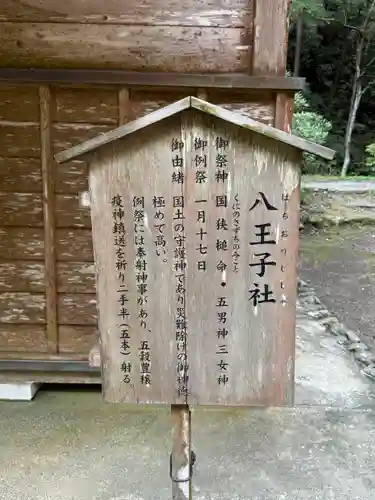 八王子社
はちおうじしゃ
御祭神 国狭槌命・五男神三女神
くにのさずちのみこと
御例祭 一月十七日
御由緒 国土の守護神であり災難除けの御神徳
極めて高い。
例祭には奉射神事があり、五穀豊穣
疫神鎮送を祈り二手半（五本）射る。